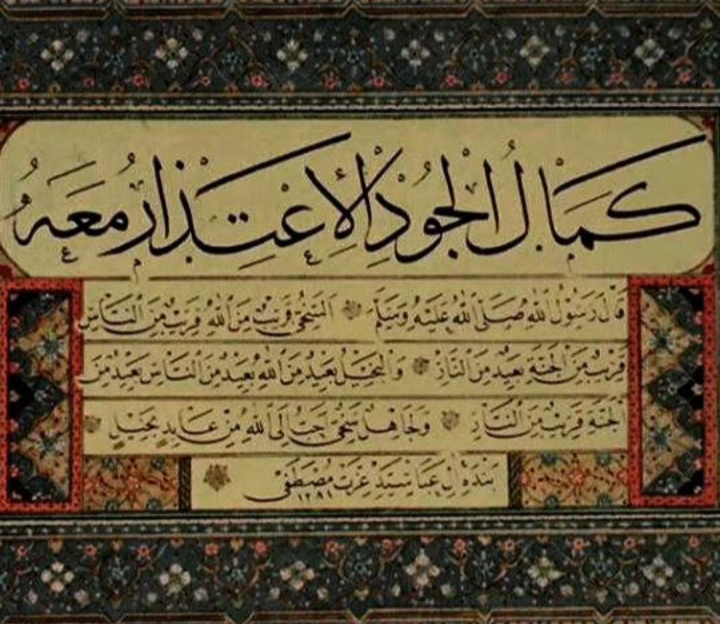 كَمَالُ الْجُودِ الْاِعْتِذَارُ مَعَهُ
قَالَ رَسُولُ اللهِ صَلَّى اللهُ عَلَيْهِ وَسَلَّمَ السَّخِيُّ قَرِيبٌ مِنَ اللهِ قَرِيبٌ مِنَ النَّاسِ
قَرِيبٌ مِنَ الْجَنَّةِ بَعِيدٌ مِنَ النَّارِ وَالْبَخِيلُ بَعِيدٌ مِنَ اللهِ بَعِيدٌ مِنَ النَّاسِ بَعِيدٌ مِنَ
الْجَنَّةِ قَرِيبٌ مِنَ النَّارِ وَلَجَاهِلٌ سَخِيٌّ اَحَبُّ اِلَى اللهِ مِنْ عَابِدٍ بَخِيلٍ
بنده آل عبا سيد عزت مصطفى